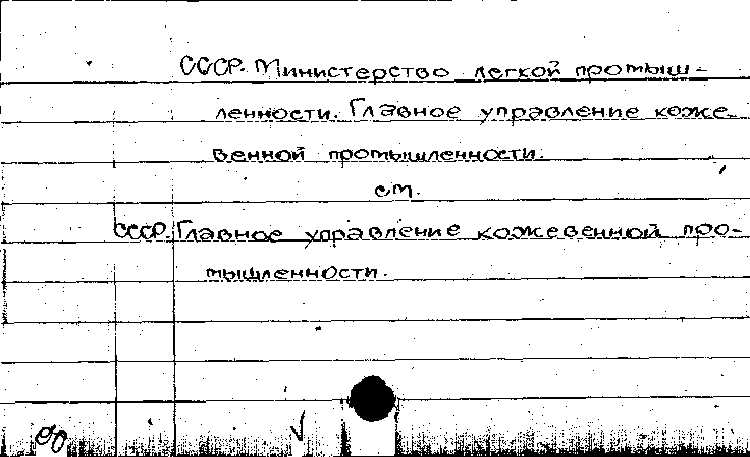 СССР. Министерство легкой промыш-
ленности. Главное управление коже-
венной промышленности.
см.
СССР. Главное управление кожевенной про-
мышленности.